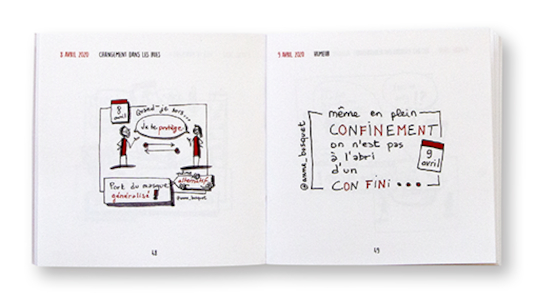 8 AVRIL 2020 CHANGEMENT DANS LES RUES
8 avril
Quand je sors...
Je te protège
Port du masque
généralisé !
même
alternatif
@anne_bosquet
48
9 AVRIL 2020 HUMOUR
@anne_bosquet
même en plein
CONFINEMENT
on n'est pas
à l'abri
d'un
CON FINI...
9
avril
49